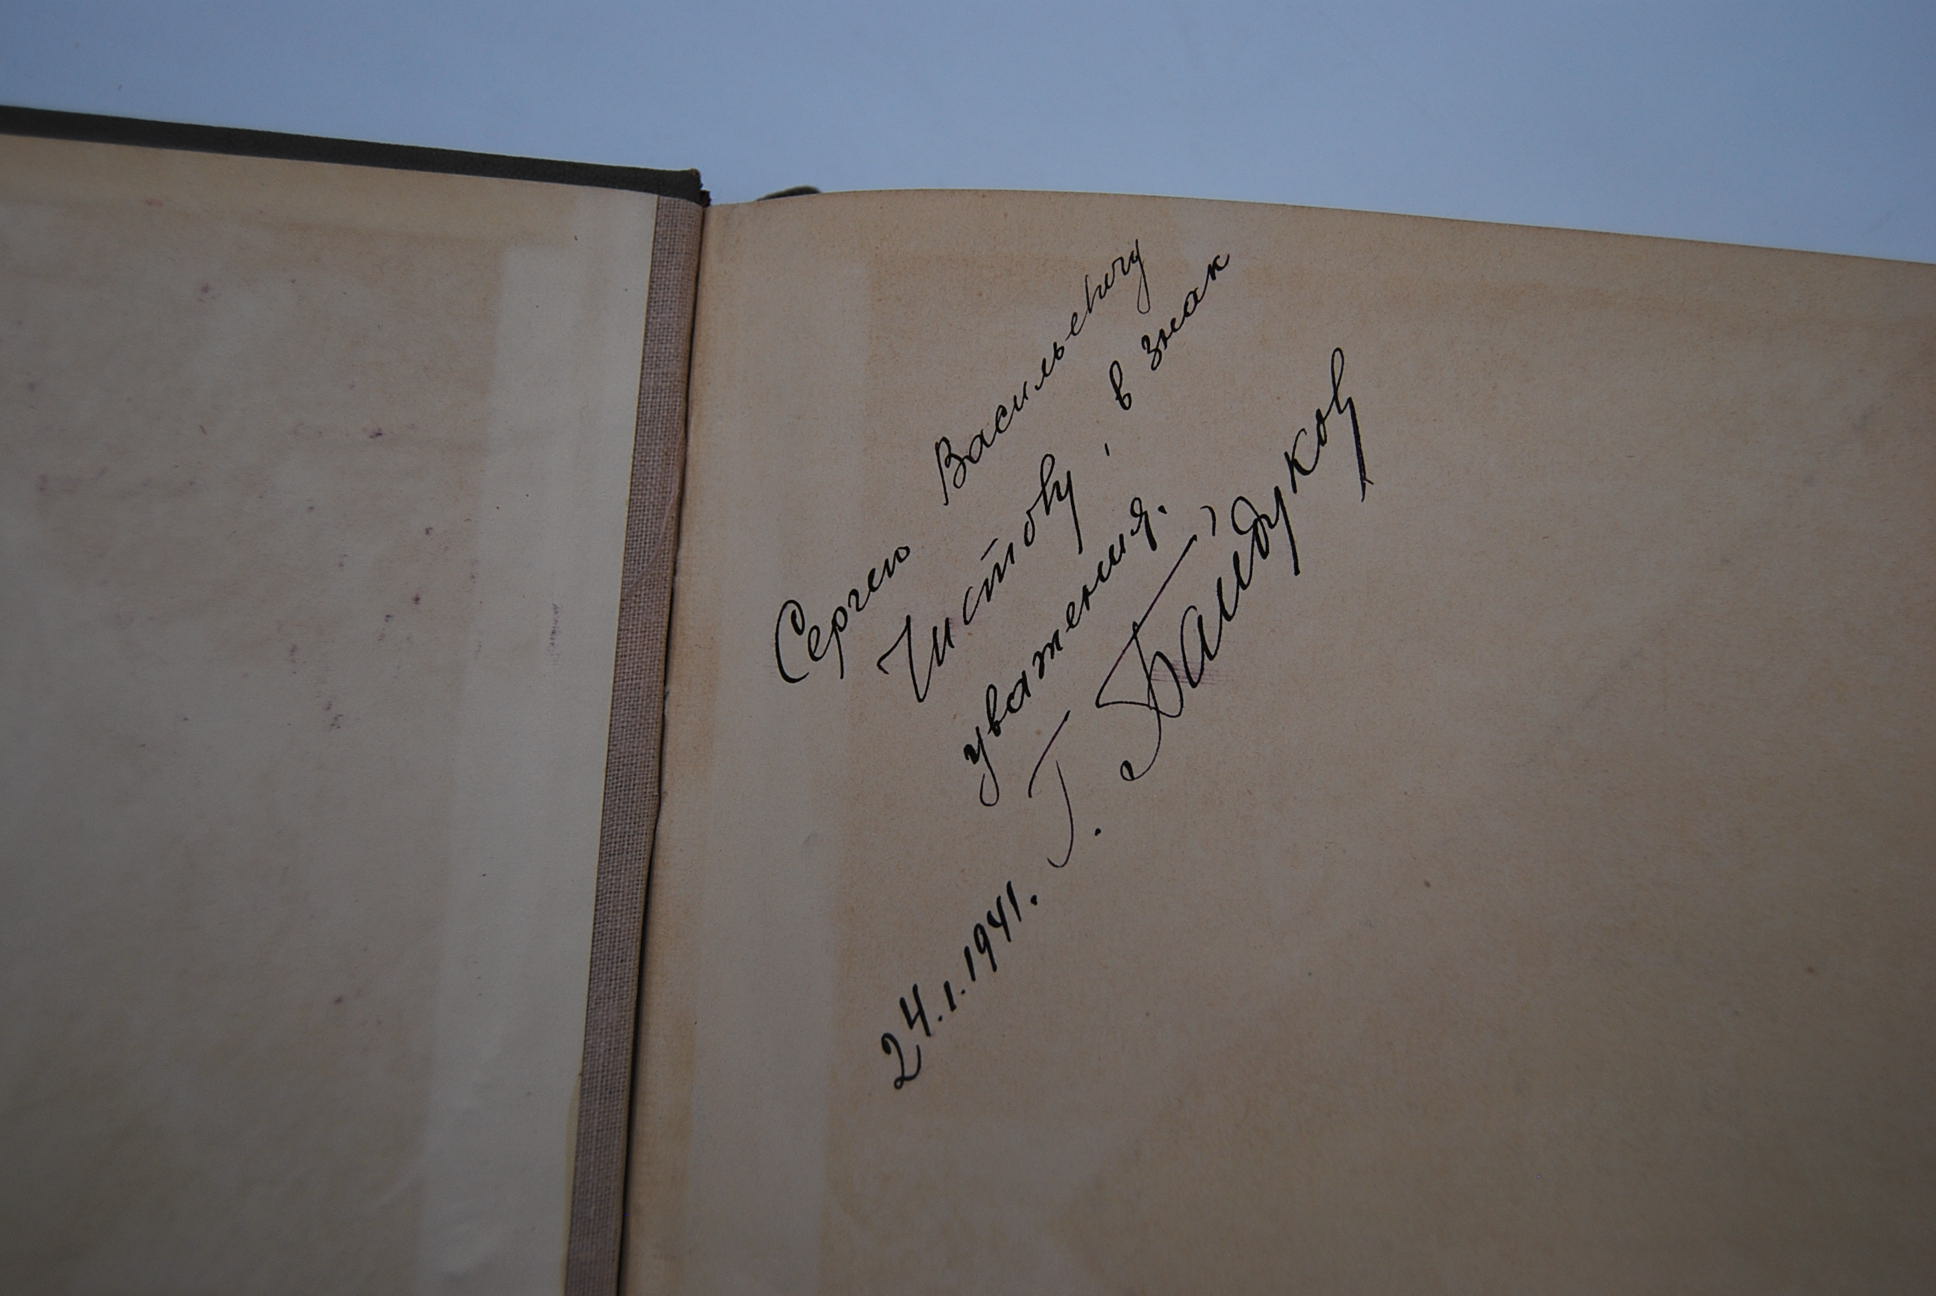 Сергею Васильевичу
Чистову, в знак
уважения.
Г. Байдуков
24.I.1941.